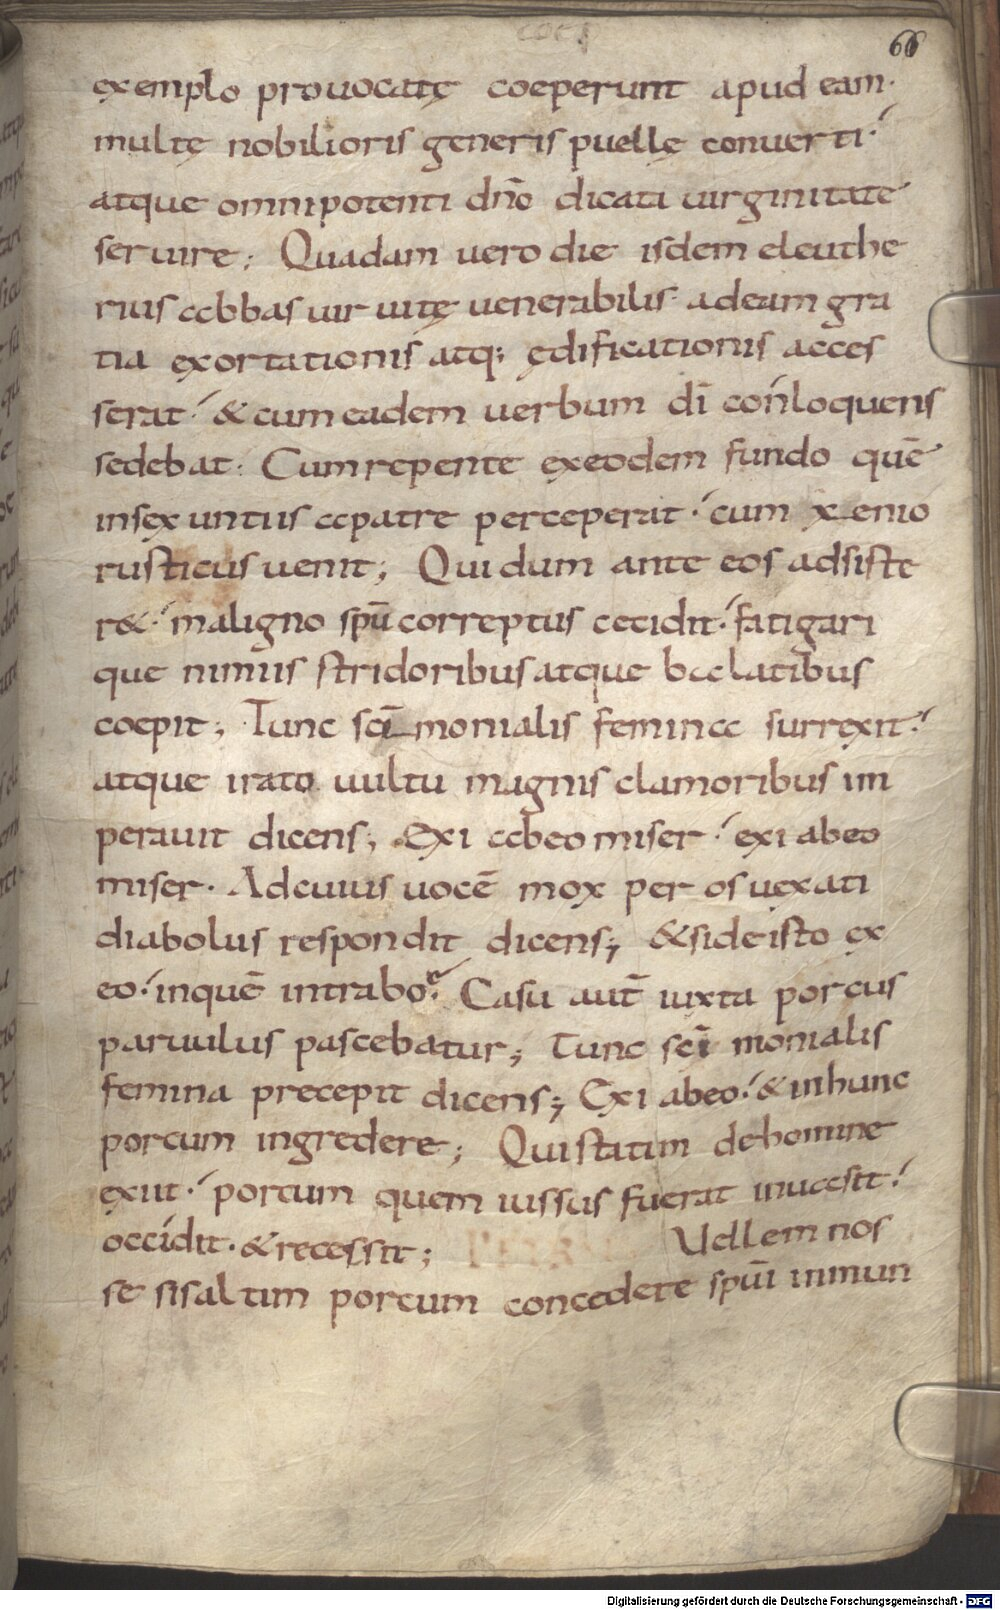 66
exemplo prouocatę coeperunt apud eam·
multę nobilioris generis puellę conuerti·
atque omnipotenti dn̄o dicata uirginitate
seruire; Quadam uero die isdem eleuthe
rius abbas uir uitę uenerabilis adeam gra
tia exortationis atq; ędificationis acces
serat· & cum eadem uerbum dī conloquens
sedebat· Cum repente exeodem fundo quē
insexuntus apatre perceperat· cum xenio
rusticus uenit; Qui dum ante eos adsiste
r&· maligno spū correptus cecidit· fatigari
que nimiis stridoribus atque balatibus
coepit; Tunc scī monialis femina surrexit·
atque irato uultu magnis clamoribus im
perauit dicens; Exi abeo miser· exi abeo
miser· Adcuius uocē mox per os uexati
diabolus respondit dicens; & side isto ex
eo· inquē intrabo· Casu aut̄ iuxta porcus
paruulus pascebatur; Tunc scī monialis
femina precepit dicens; Exi abeo· & inhunc
porcum ingredere; Qui statim dehomine
exiit· porcum quem iussus fuerat inuasit·
occidit· & recessit; Uellem nos
se si saltim porcum concedere spūi inmun
Digitalisierung gefördert durch die Deutsche Forschungsgemeinschaft - DFG